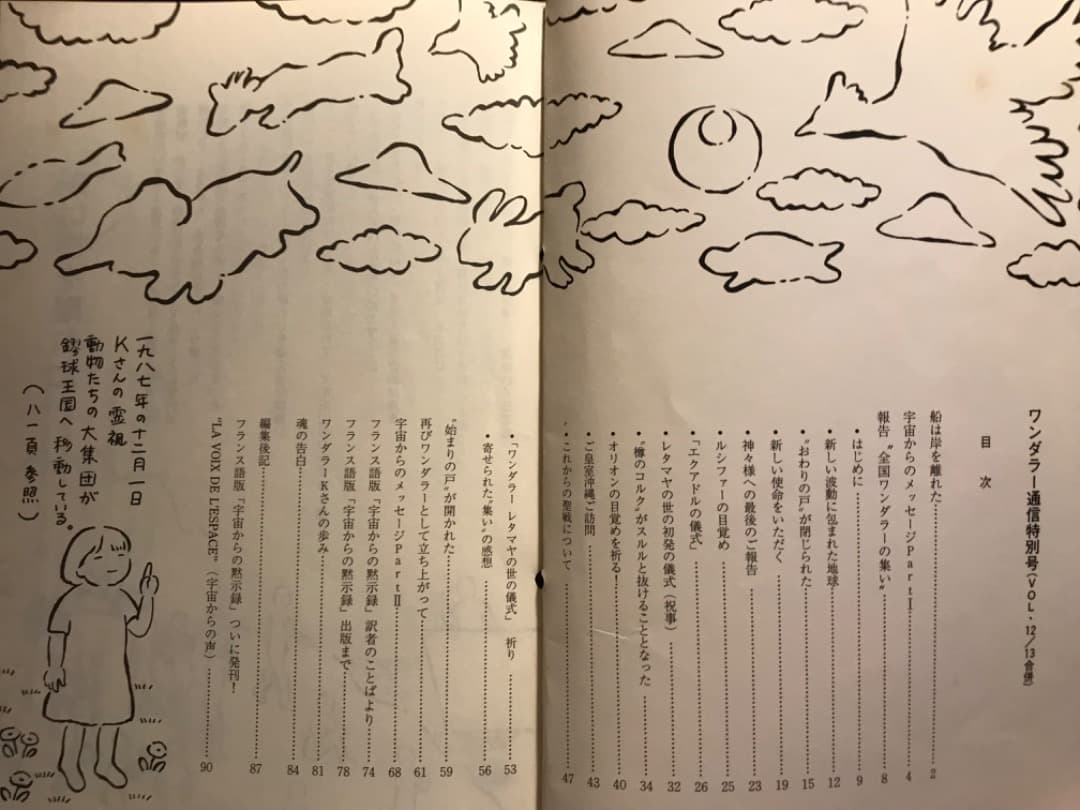 ワンダラー通信特別号(VOL・12/13合併)
目次
船は岸を離れた 2
宇宙からのメッセージPartⅠ 4
報告 〝全国ワンダラーの集い〟 8
・はじめに 9
・新しい波動に包まれた地球 12
・〝おわりの戸〟が閉じられた 15
・新しい使命をいただく 19
・神々様への最後のご報告 23
・ルシファーの目覚め 25
・「エクアドルの儀式」 26
・レタマヤの世の初発の儀式(祝事) 32
・〝樽のコルク〟がスルルと抜けることとなった 34
・オリオンの目覚めを祈る! 40
・ご皇室沖縄ご訪問 43
・これからの聖戦について 47
・「ワンダラー レタマヤの世の儀式」 祈り 53
・寄せられた〝集い〟の感想 56
〝始まりの戸〟が開かれた 59
再びワンダラーとして立ち上がって 61
宇宙からのメッセージPartⅡ 68
フランス語版「宇宙からの黙示録」訳者のことばより 74
フランス語版「宇宙からの黙示録」出版まで 78
ワンダラーKさんの歩み 81
魂の告白 84
編集後記 87
フランス語版「宇宙からの黙示録」ついに発刊!
〝LA VOIX DE L'ESPACE〟(宇宙からの声) 90
一九八七年の十二月一日
Kさんの霊視
動物たちの大集団が
球王国へ移動している。
(八一頁参照)